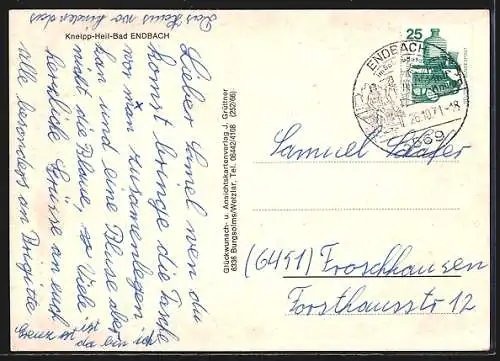 Das Haus wo hinder das
Kneipp-Heil-Bad ENDBACH
Lieber Samel wen du
komst bringe die Tasche
vor man zusammenlegen
kan und eine Bluse aber
nicht die Blaue, so Viele
herzliche Grüsse an euch
Alle besonders an Brigitte
Kreuz ist ist
da ein ich
Glückwunsch- u. Ansichtskartenverlag J. Grüttner
6336 Burgsolms/Wetzlar. Tel. 06442/4108 (252/66)
25
ENDBACH
26.10.71-18
Samuel Schäfer
(6451) Froschhausen
Forsthausstr 12